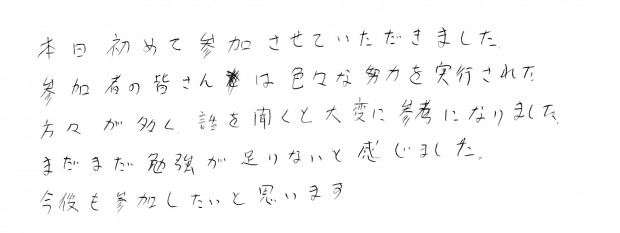 本日初めて参加させていただきました
参加者の皆さんは色々な努力を実行された
方々が多く、話を聞くと大変に参考になりました。
まだまだ勉強が足りないと感じました。
今後も参加したいと思います